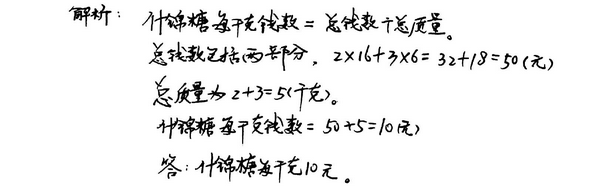 解析： 什锦糖每千克钱数 = 总钱数÷总质量。
总钱数包括两部分，2×16+3×6=32+18=50(元)
总质量为2+3=5(千克)。
什锦糖每千克钱数=50÷5=10(元)
答：什锦糖每千克10元。